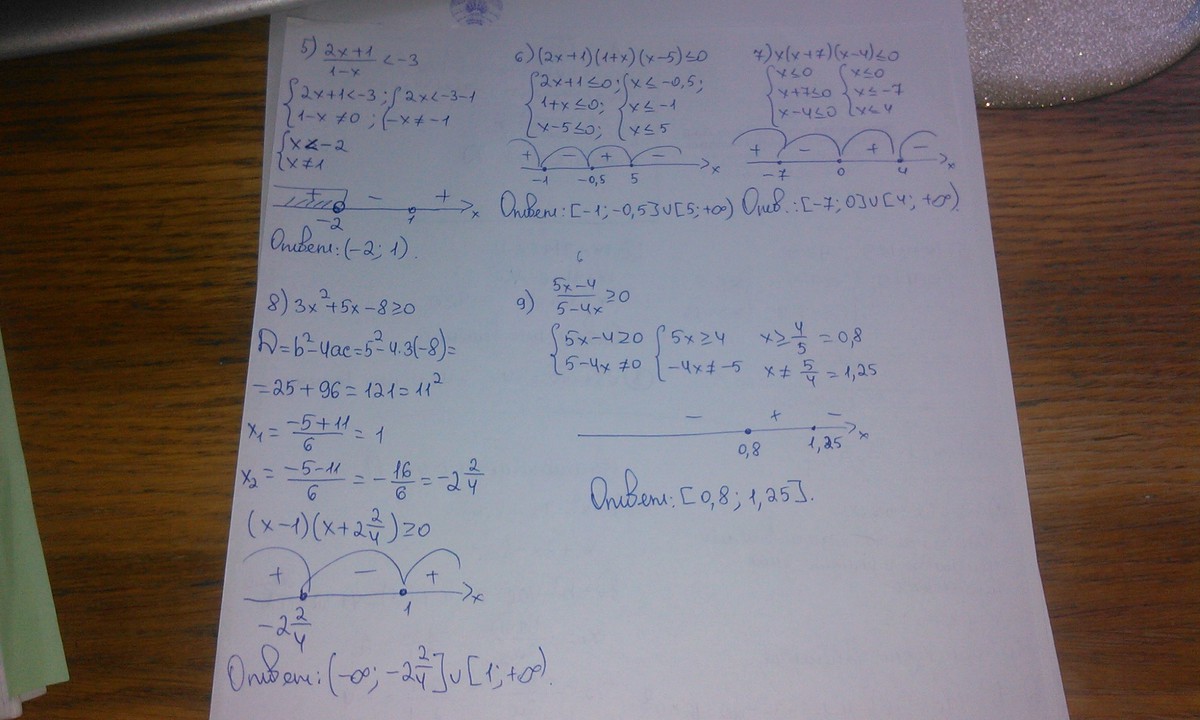 5) (2x+1)/(1-x) < -3
{2x+1<-3 ; {2x<-3-1
{1-x≠0 ; {-x≠-1
{x<-2
{x≠1
+ - +
-2 1 x
Ответ: (-2; 1).
6) (2x+1)(1+x)(x-5)≤0
{2x+1≤0; {x≤-0,5;
{1+x≤0; {x≤-1
{x-5≤0; {x≤5
+ - + -
-1 -0,5 5 x
Ответ: [-1; -0,5]∪[5; +∞)
7) x(x+7)(x-4)≤0
{x≤0 {x≤0
{x+7≤0 {x≤-7
{x-4≤0 {x≤4
+ - + -
-7 0 4 x
Отв.: [-7; 0]∪[4; +∞).
8) 3x²+5x-8≥0
D=b²-4ac=5²-4·3(-8)=
=25+96=121=11²
x₁= (-5+11)/6 = 1
x₂= (-5-11)/6 = -16/6 = -2 2/4
(x-1)(x+2 2/4)≥0
+ - +
-2 2/4 1 x
Ответ: (-∞; -2 2/4]∪[1; +∞).
9) (5x-4)/(5-4x) ≥0
{5x-4≥0 {5x≥4 x≥ 4/5 = 0,8
{5-4x≠0 {-4x≠-5 x≠ 5/4 = 1,25
- + -
0,8 1,25 x
Ответ: [0,8; 1,25].